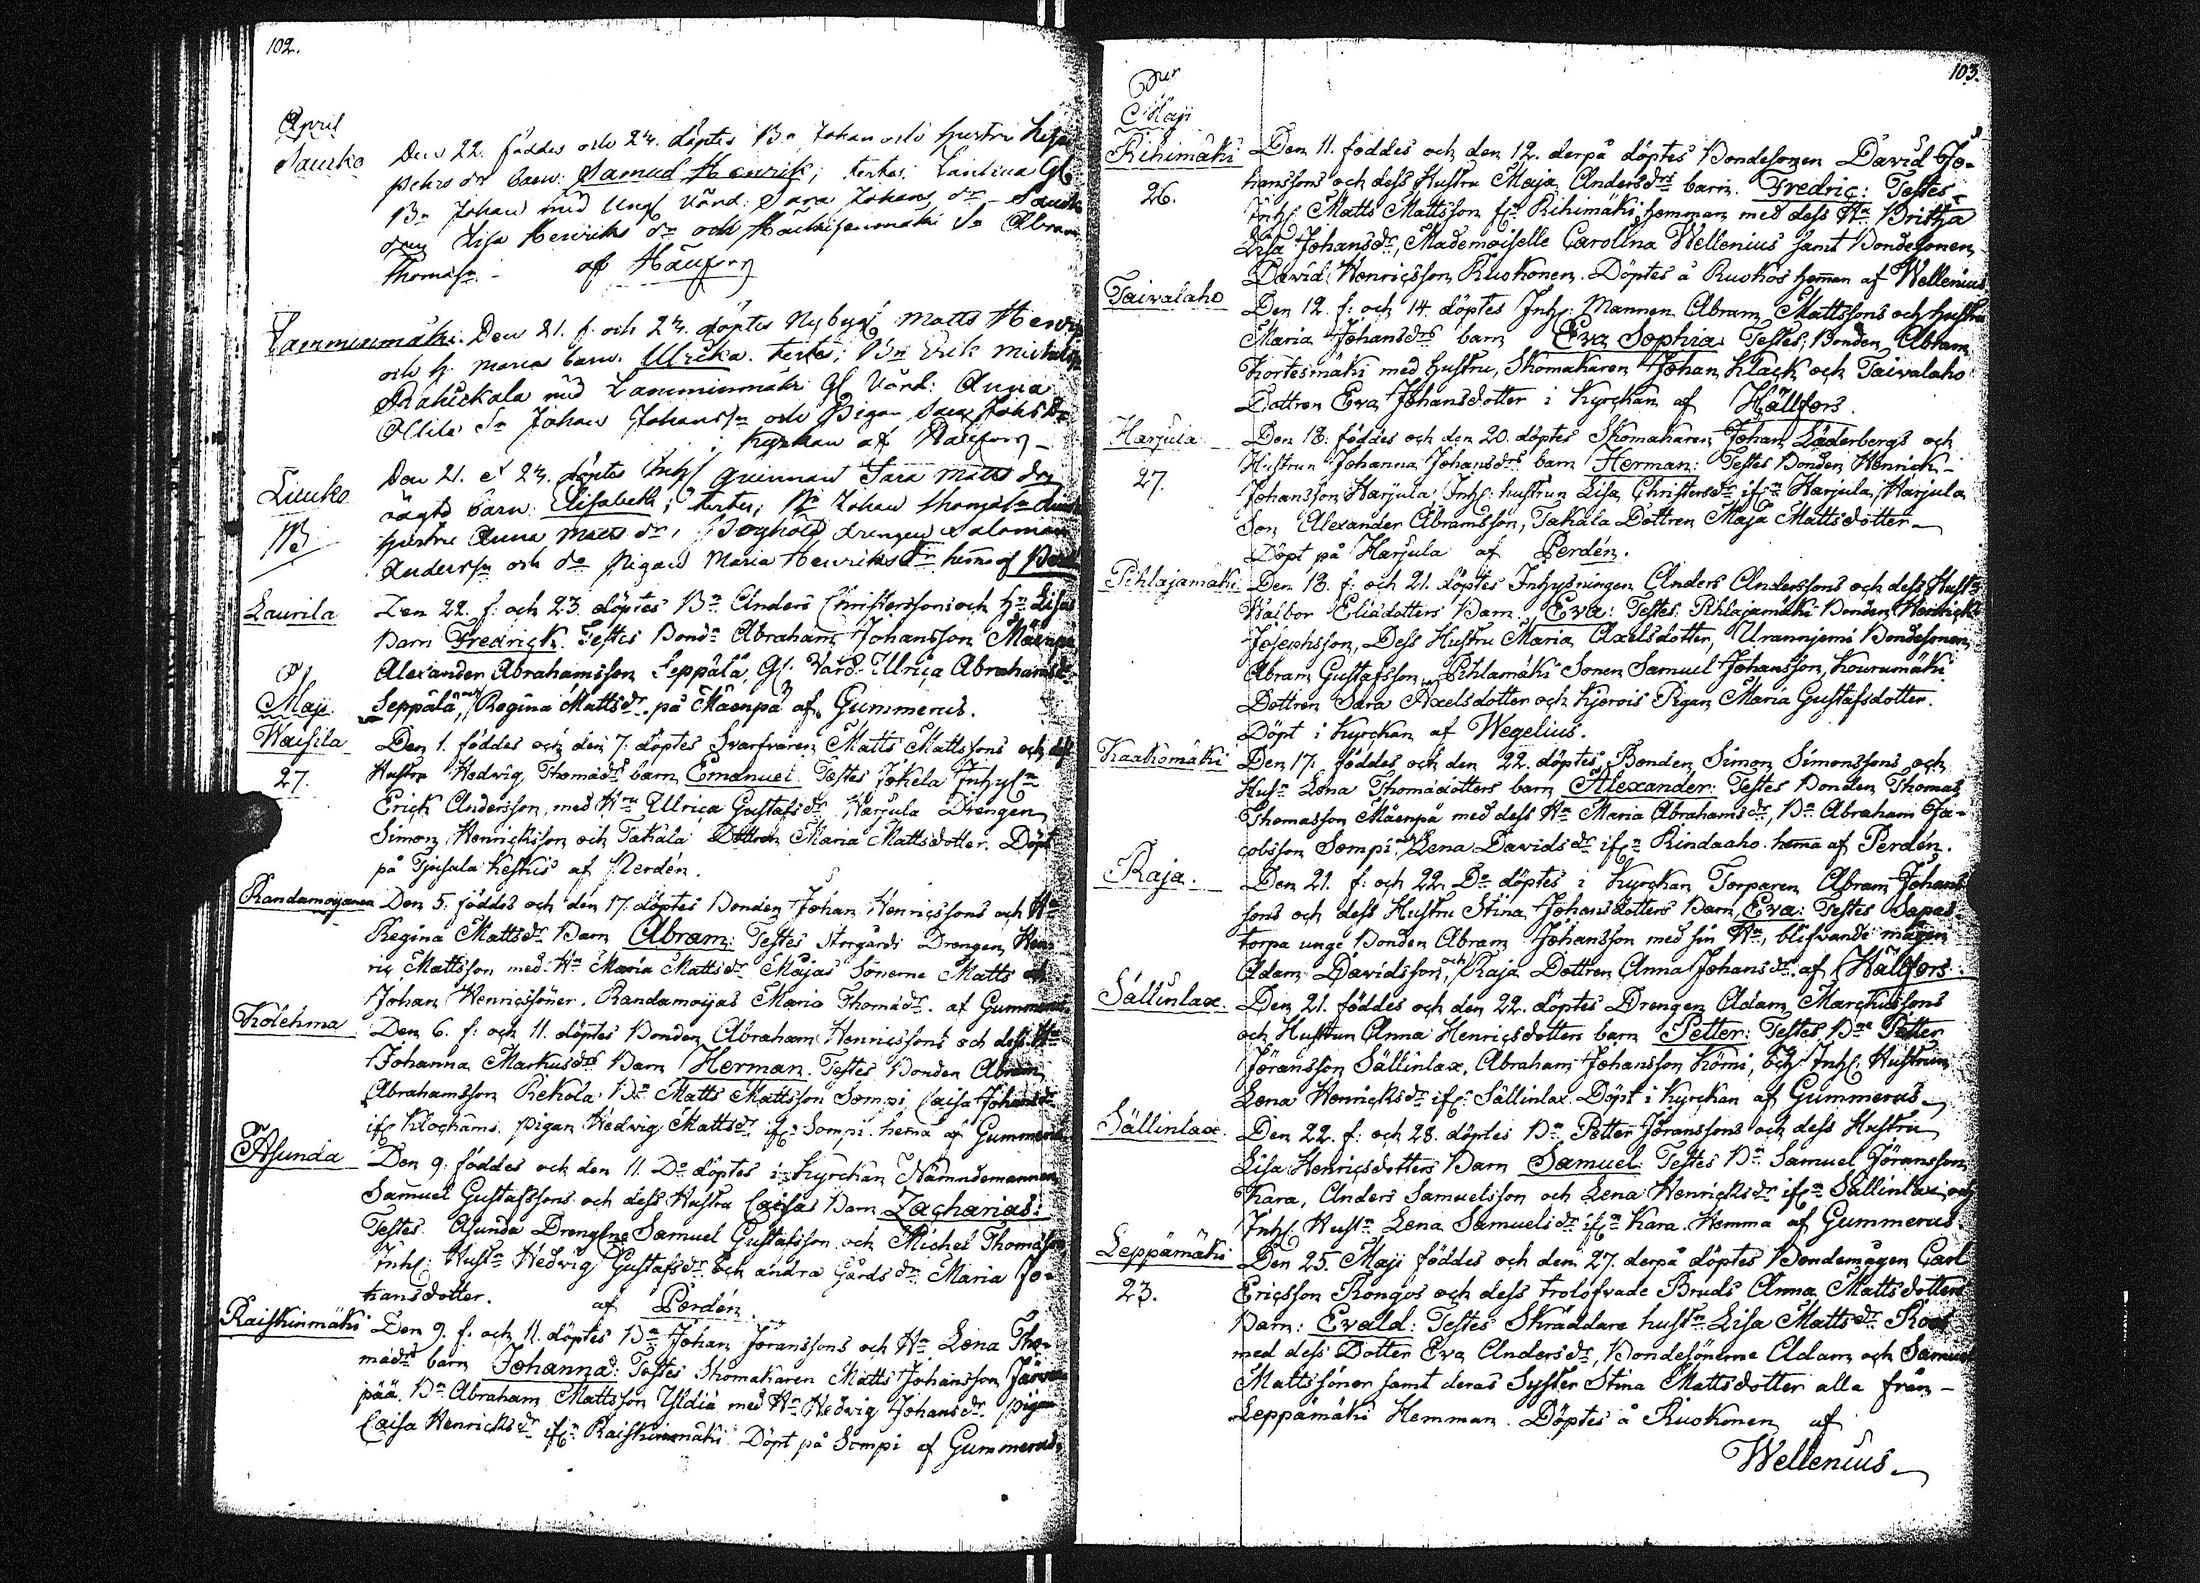 102.
April
Saucko Den 22. föddes och 24. döptes Bn Johan och hustru Lisa
Petersdr barn: Samuel Henrik; testes: Gl
Bn Johan med Ungl Värd: Sara Johans dr
Lisa Henriks dr och So Abram
Thomasn. af Hällfors
Lamminmäki. Den 21. f. och 24. döptes Nybygg Matts Henr
och h. Maria barn. Ulrika. testes; Bn Erik Michels
med Lamminmäki Gl Värd: Anna
Ollila So Johan Johanssn och Pigan Johsdr
i Kyrkan af Hällfors
Liuko Den 21. et 24. döptes Inhs qvinnan Sara Matts drs
oägta barn: Elisabeth; testes, Bn Johan Thomasn
NB hustru Anna Matts dr, drengen Salomon
Anderssn och Do Pigan Maria Henriksdr hema af
Laurila Den 22. f. och 23. döptes Bn Anders Christerssons och Hn Lisas
Barn Fredrick. Testes Bondn Abraham Johansson Mäenpä
Alexander Abrahamsson Leppälä, Gl. Värd. Ulrica Abrahamsdr
Seppälä, och Regina Mattsdr på Mäenpä af Gummerus.
Maji
Waisila Den 1. föddes och den 7. döptes Svarfvaren Matts Mattssons och dess
27. Hustru Hedvig Thomædrs barn Emanuel. Testes Jokela Inhysn
Erick Andersson, med Hn Ulrica Gustafsdr Harjula Drengen
Simon Henricksson och Takala Dottren Maria Mattsdotter. Döpt
på Tjusala Keskis af Perdén.
Randamoyanen Den 5. föddes och den 17. döptes Bonden Johan Henricssons och Hn
Regina Mattsdr Barn Abram: Testes Storgårds Drengen Hen-
ric Mattsson med Hn Maria Mattsdr Majas Sönerne Matts och
Johan Henricssöner. Randamoyas Maria Thomædr. af Gummerus.
Kolehma Den 6. f: och 11. döptes Bonden Abraham Henricssons och dess Hn
Johanna Markusdrs Barn Herman. Testes Bonden Abram
Abrahamsson Rekola Bn Matts Mattsson Sompi, Caisa Johansdr
ifn Klockams. pigan Hedvig Mattsdr ifn Sompi. hema af Gummerus
Asunda Den 9. föddes och den 11. Do döptes i Kyrckan Nämndemannen
Samuel Gustafssons och dess Hustru Caisas Barn Zacharias:
Testes. Asunda Drengsne Samuel Gustafsson och Michel Thomasson
Inhs: Hustn Hedvig Gustafsdr och andra Gårds dn Maria Jo-
hansdotter. af Perdén
Raiskinmäki Den 9. f: och 11. döptes Bn Johan Joranssons och Hn Lena Tho-
mædrs barn Johanna: Testes Skomakaren Matts Johansson Järven
pää. Bn Abraham Mattsson Yldiä med Hn Hedvig Johansdr. pigan
Caisa Henricksdr ifn Raiskinmäki. Döpt på Sompi af Gummerus.
103.
Pur
Maji
Rihimäki Den 11. föddes och den 12. derpå döptes Bondesonen David Jo-
26. hanssons och dess Hustru Maja Andersdrs barn. Fredric: Testes
Inhs. Matts Mattsson fr. Rihimäki hemman med dess Hn Britha
Lisa Johansdr, Mademoiselle Carolina Wellenius samt Bondesonen
David Henricsson Ruokonen. Döptes å Ruokos heman af Wellenius
Taivalaho Den 12. f: och 14. döptes Inhs: Mannen Abram Mattssons och hustru
Maria Johansdrs barn Eva Sophia Testes, Bonden Abram
Kortesmäki med hustru, Skomakaren Johan Klack och Taivalaho
Dottren Eva Johansdotter i Kyrckan af Hällfors.
Harjula Den 18. föddes och den 20. döptes Skomakaren Johan Läderbergs och
27. Hustrun Johanna Johansdrs barn Herman: Testes Bonden Henrick
Johansson Harjula, Inhs: hustrun Lisa Christersdr ifn Harjula, Harjula
Son Alexander Abramsson, Takala Dottren Maja Mattsdotter
Döpt på Harjula af Perdén.
Pihlajamäki Den 18. f: och 21. döptes Inhysningen Anders Anderssons och dess Hustr
Walbor Eliædotters Barn Eva: Testes. Pihlajamäki Bonden Henrick
Josephsson, Dess Hustru Maria Axelsdotter, Urannjemi Bondesonen
Abram Gustafsson, Pihlamäki Sonen Samuel Johansson, Kouramäki
Dottren Sara Axelsdotter och Kjerois Pigan Maria Gustafsdotter.
Döpt i Kyrckan af Wegelius.
Kaakomäki Den 17. föddes och den 22. döptes, Bonden Simon Simonssons och
Husn Lena Thomædotters barn Alexander: Testes Bonden Thomas
Thomasson Mäenpä med dess Hn Maria Abrahamsdr, Bn Abraham Ja-
cobsson Sompi. och Lena Davidsdr ifn Rindaaho. hema af Perdén.
Raja. Den 21. f: och 22. Do döptes i Kyrckan Torparen Abram Johans-
sons och dess Hustru Stina Johansdotters Barn Eva: Testes Sapas-
torpa unge Bonden Abram Johansson med sin Hn, blifvande mågen
Adam Davidsson, och Raja Dottren Anna Johansdr. af Hällfors.
Sällinlax. Den 21. föddes och den 22. döptes Drengen Adam Marckussons
och Hustrun Anna Henricsdotters barn Petter: Testes, Bne Petter
Jöransson Sällinlax, Abraham Johansson Körni, och Inhs. Hustrun
Lena Henricksdr ifn Sällinlax. Döpt i Kyrckan af Gummerus.
Sällinlax. Den 22. f: och 28. döptes Bn Petter Jöranssons och dess Hustru
Lisa Henricsdotters Barn Samuel. Testes Bn Samuel Jöransson
Kara, Anders Samuelsson och Lena Henricksdr ifn Sällinlax och
Inhs. Hustn Lena Samuelsdr ifn Kara. Hemma af Gummerus.
Leppämäki Den 25. Maji föddes och den 27. derpå döptes Bondemågen Carl
23. Ericsson Rongos och dess trolofvade Bruds Anna Mattsdotters
Barn: Evald: Testes Skräddare hustn Lisa Mattsdr
med dess Dotter Eva Andersdr, Bondesönerne Adam och Samuel
Mattssöner samt deras Syster Stina Mattsdotter alla från
Leppämäki Hemman. Döptes å Ruokonen af
Wellenius